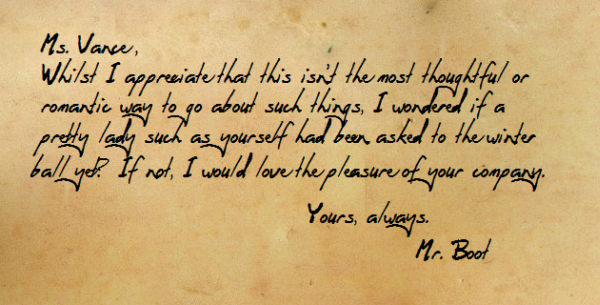 Ms. Vance,
Whilst I appreciate that this isn't the most thoughtful or
romantic way to go about such things, I wondered if a
pretty lady such as yourself had been asked to the winter
ball yet? If not, I would love the pleasure of your company.
Yours, always.
Mr. Boot